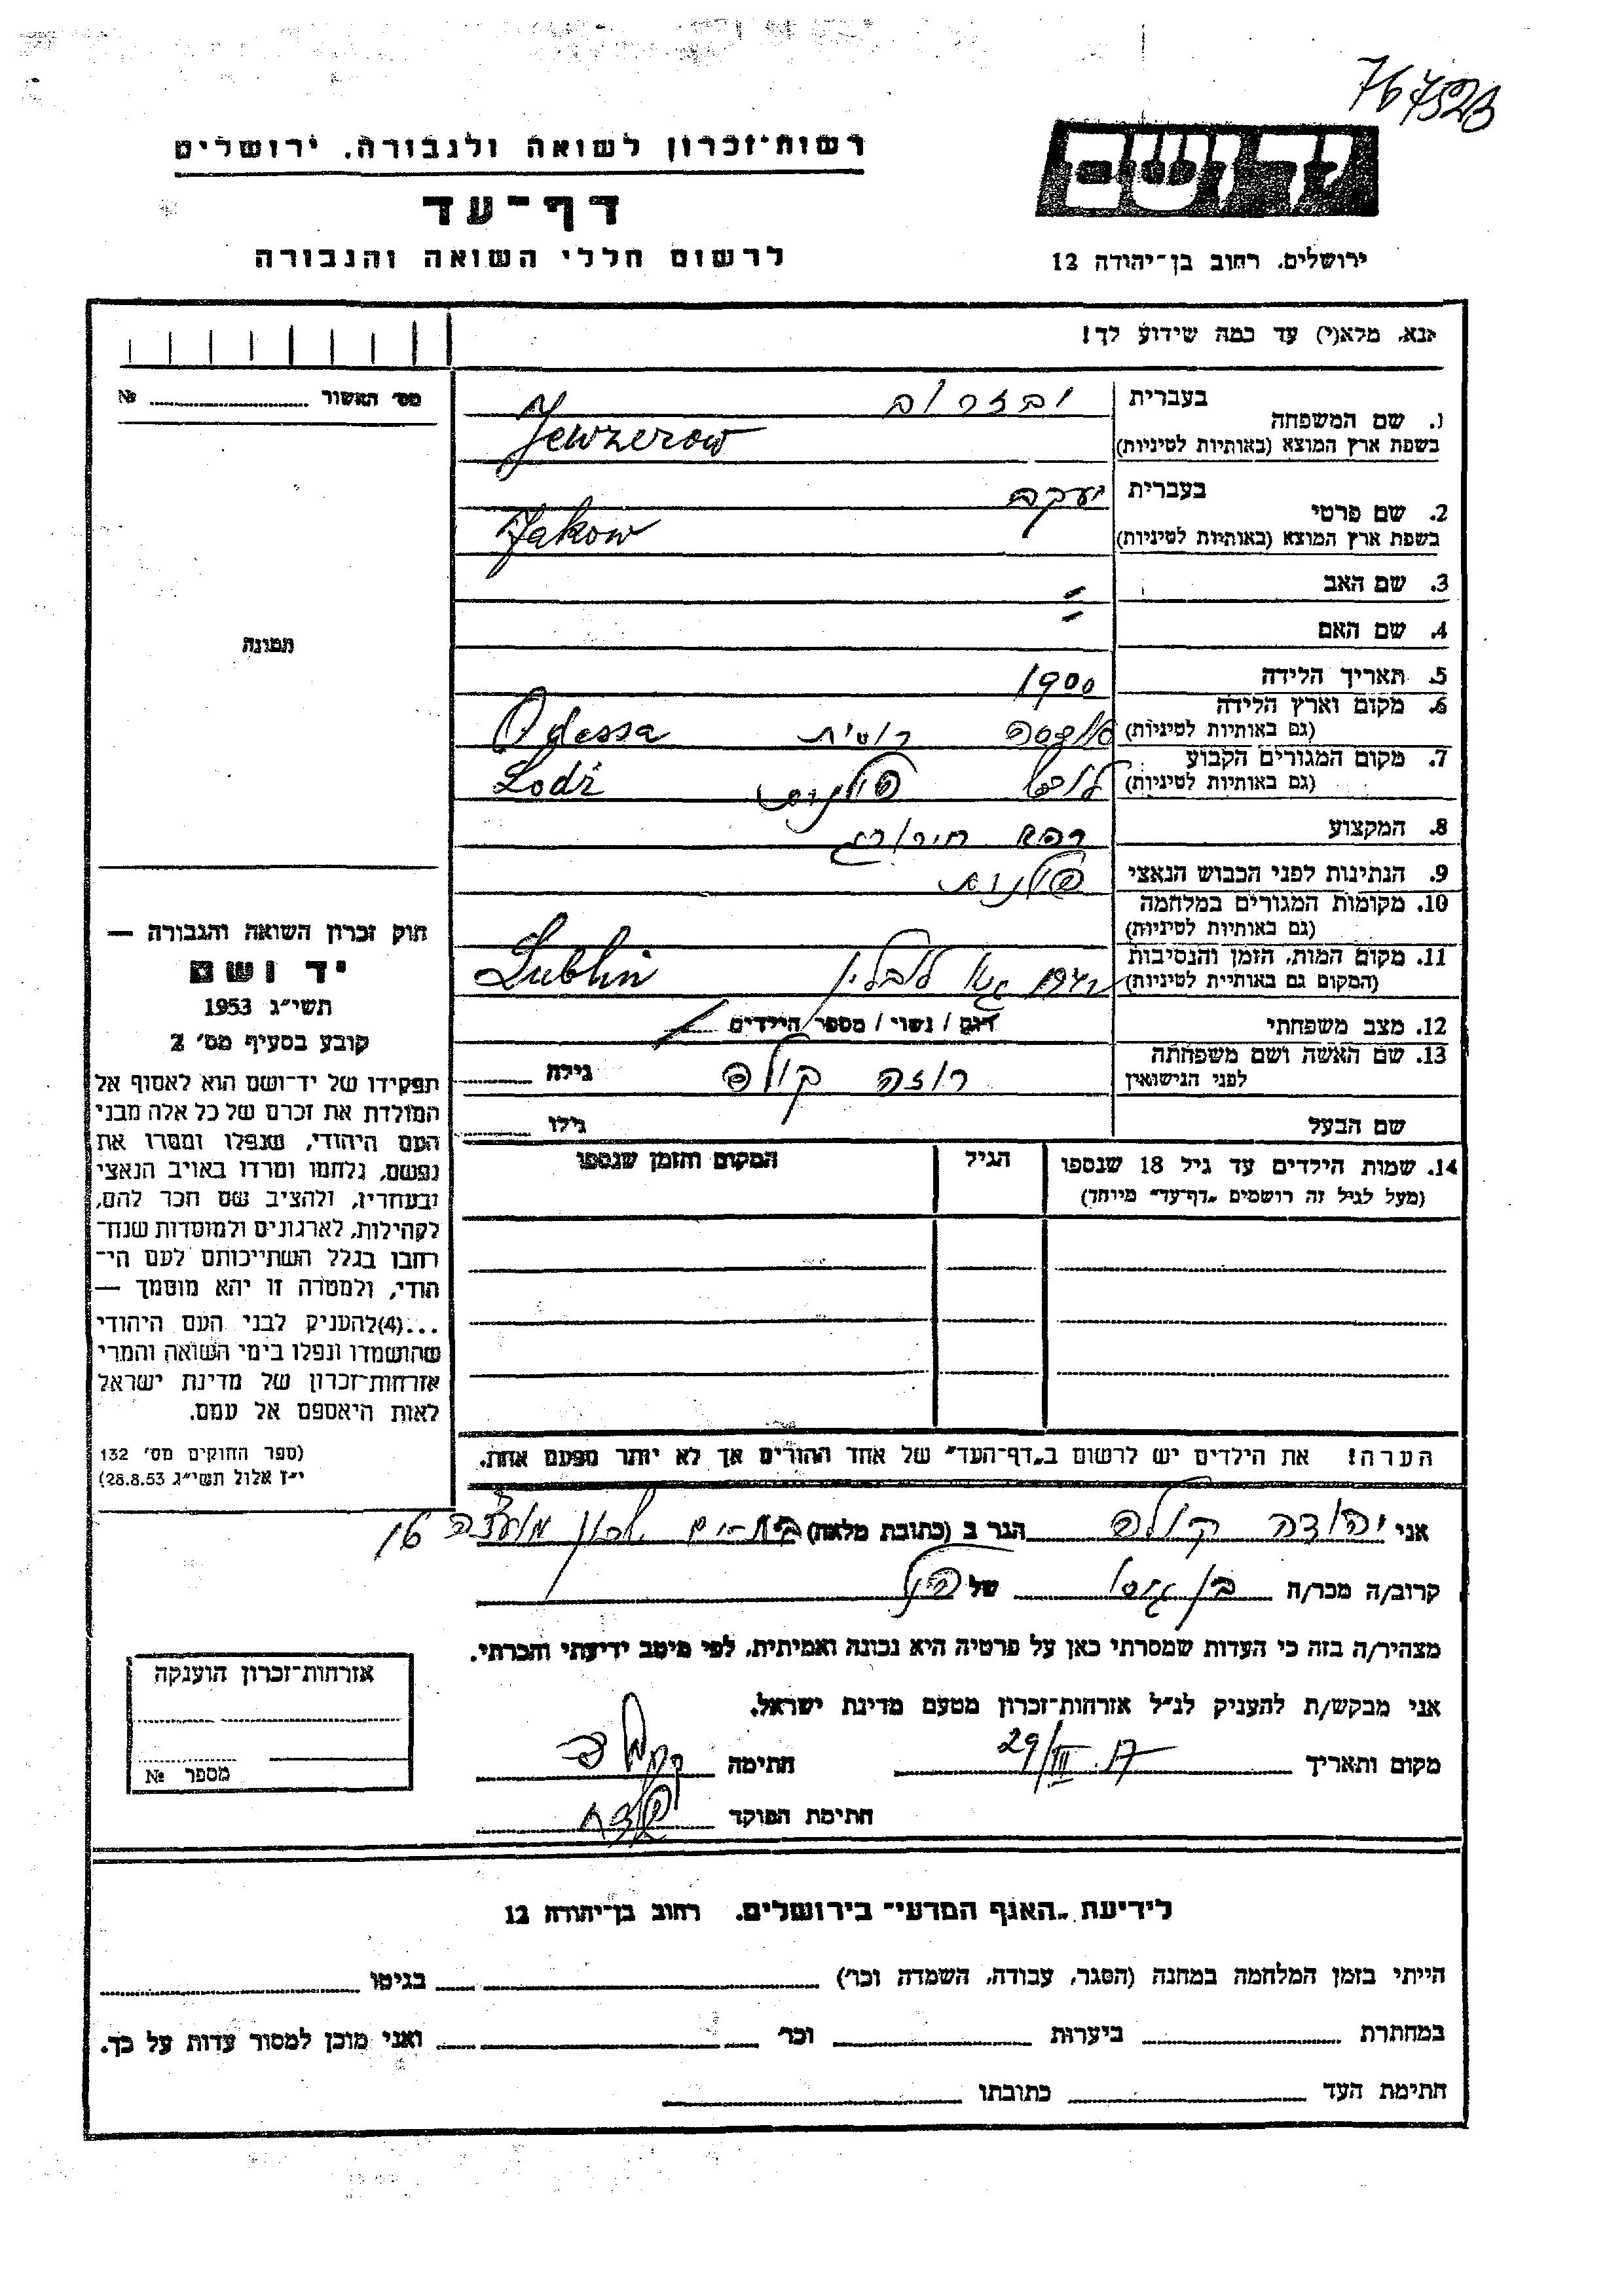 767523
רשות־זכרון לשואה ולגבורה, ירושלים
דף־עד
לרשום חללי השואה והגבורה
יד ושם
ירושלים, רחוב בן־יהודה 12
נא, מלא(י) עד כמה שידוע לך!
מס׳ האשור № 
1. שם המשפחה
בעברית
בשפת ארץ המוצא (באותיות לטיניות)
Jewzerow
2. שם פרטי
בעברית יעקב
בשפת ארץ המוצא (באותיות לטיניות)
Jakow
3. שם האב =
4. שם האם
5. תאריך הלידה 1900
6. מקום וארץ הלידה
(גם באותיות לטיניות) אודסה רוסית Odessa
7. מקום המגורים הקבוע
(גם באותיות לטיניות) לודז׳ Lodź
8. המקצוע רפא חירורג
9. הנתינות לפני הכבוש הנאצי פולנית
10. מקומות המגורים במלחמה
(גם באותיות לטיניות)
11. מקום המות, הזמן והנסיבות
(המקום גם באותיית לטיניות) גטו לובלין Lublin
12. מצב משפחתי רוק / נשוי / מספר הילדים
13. שם האשה ושם משפחתה
לפני הנישואין רוזה קולפ גילה
שם הבעל גילו
14. שמות הילדים עד גיל 18 שנספו
(מעל לגיל זה רושמים „דף־עד״ מיוחד)
הגיל
המקום והזמן שנספו
הערה! את הילדים יש לרשום ב„דף־העד״ של אחד ההורים אך לא יותר מפעם אחת.
תמונה
חוק זכרון השואה והגבורה —
יד ושם
תשי״ג 1953
קובע בסעיף מס׳ 2
תפקידו של יד־ושם הוא לאסוף אל
המולדת את זכרם של כל אלה מבני
העם היהודי, שנפלו ומסרו את
נפשם, נלחמו ומרדו באויב הנאצי
ובעוזריו, ולהציב שם וזכר להם,
לקהילות, לארגונים ולמוסדות שנח־
רבו בגלל השתייכותם לעם הי־
הודי, ולמטרה זו יהא מוסמך —
...(4)להעניק לבני העם היהודי
שהושמדו ונפלו בימי השואה והמרי
אזרחות־זכרון של מדינת ישראל
לאות היאספם אל עמם.
(ספר החוקים מס׳ 132
י״ז אלול תשי״ג 28.8.53)
אני יהודה קולפ הגר ב (כתובת מלאה)
קרוב/ה מכר/ה בן גיסו של הנ״ל
מצהיר/ה בזה כי העדות שמסרתי כאן על פרטיה היא נכונה ואמיתית, לפי מיטב ידיעתי והכרתי.
אני מבקש/ת להעניק לנ״ל אזרחות־זכרון מטעם מדינת ישראל.
מקום ותאריך 29/III חתימה
חתימת הפוקד
אזרחות־זכרון הוענקה
מספר №
לידיעת „האגף המדעי״ בירושלים, רחוב בן־יהודה 12
הייתי בזמן המלחמה במחנה (הסגר, עבודה, השמדה וכו׳) בגיטו
במחתרת ביערות וכו׳ ואני מוכן למסור עדות על כך.
חתימת העד כתובתו